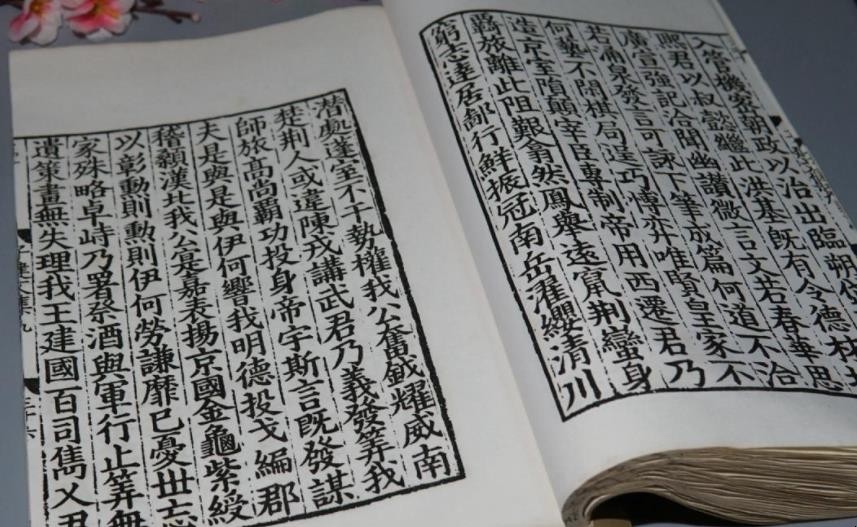 入管機密朝政以治出臨朔岱
熙君以叔懿繼此洪基既有令德材技
廣宣強記洽聞幽讚微言文若春華思
若涌泉發言可詠下筆成篇何道不洽
何藝不閑棋局逞巧博弈唯賢皇家不
造京室隕顛宰臣專制帝用西遷君乃
羇旅離此阻艱翕然鳳舉遠竄荊蠻身
窮志達居鄙行鮮振冠南岳濯纓清川
潛處蓬室不干勢權我公奮鉞耀威南
楚荊人或違陳戎講武君乃義發筭我
師旅高尚霸功投身帝宇斯言既發謀
夫是與是與伊何響我明德投戈編郡
稽顙漢北我公寔嘉表揚京國金龜紫綬
以彰勳則勳則伊何勞謙靡已憂世忘
家殊略卓峙乃署祭酒與軍行止筭無
遺策畫無失理我王建國百司雋乂君